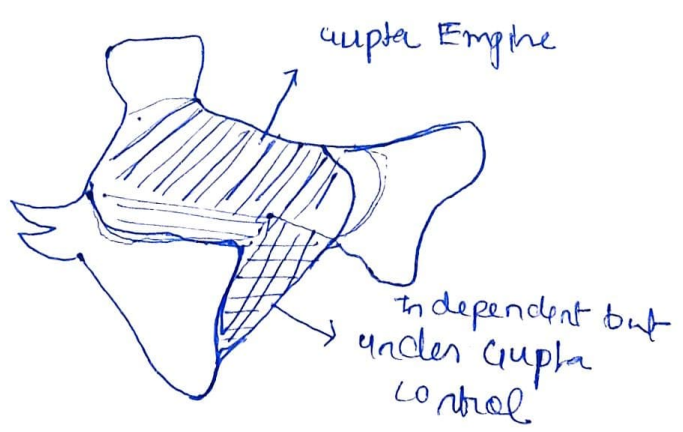 Gupta Emgine
Independent but
under Gupta
control